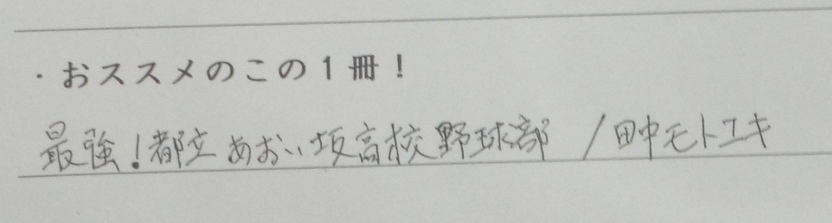 ・おススメのこの1冊！
最強！都立あおい坂高校野球部 /田中モトユキ